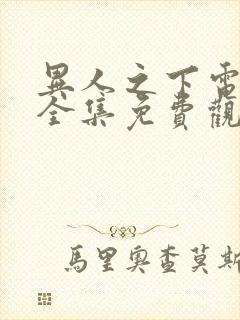 異人之下電
全集免費觀
馬里奧查莫斯